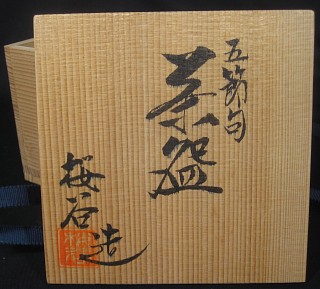 五節句
茶盌
桜谷造